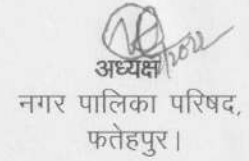 अध्यक्ष
नगर पालिका परिषद,
फतेहपुर।